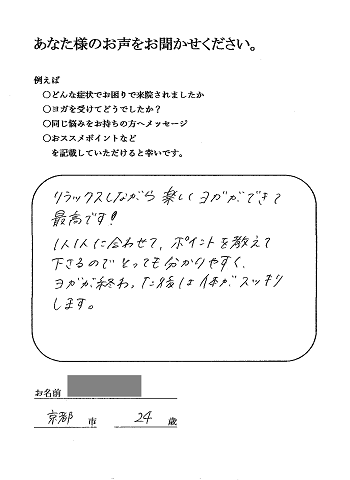 あなた様のお声をお聞かせください。
例えば
○どんな症状でお困りで来院されましたか
○ヨガを受けてどうでしたか？
○同じ悩みをお持ちの方へメッセージ
○おススメポイントなど
を記載していただけると幸いです。
リラックスしながら楽しくヨガができて
最高です!
1人1人に合わせて、ポイントを教えて
下さるのでとっても分かりやすく、
ヨガが終わった後は体がスッキリ
します。
お名前
京都 市 24 歳